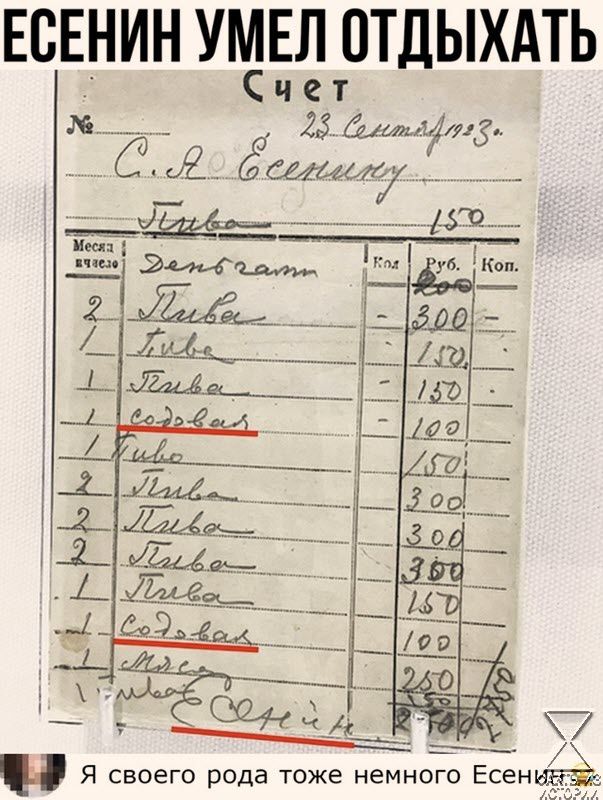 ЕСЕНИН УМЕЛ ОТДЫХАТЬ
Счет
№ 23 Сентяб 1923г.
С. А Есенину
Пива 150
Месяц и число Кол Руб. Коп.
Деньгами 200
2 Пива - 300 -
1 Пива 150
1 Пива - 150
1 содовая - 100
1 Пиво 150
2 Пива 300
2 Пива 300
2 Пива 300
1 Пива 150
1 Содовая 100
1 Мясо 250
1 Пива 150
ЕСЕНИН
Я своего рода тоже немного Есенин